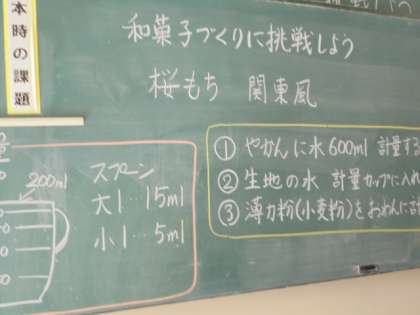 本時の課題
和菓子づくりに挑戦しよう
桜もち 関東風
200ml
スプーン
大1…15ml
小1…5ml
①やかんに水600ml 計量する
②生地の水 計量カップに入れ
③薄力粉(小麦粉)をおわんに